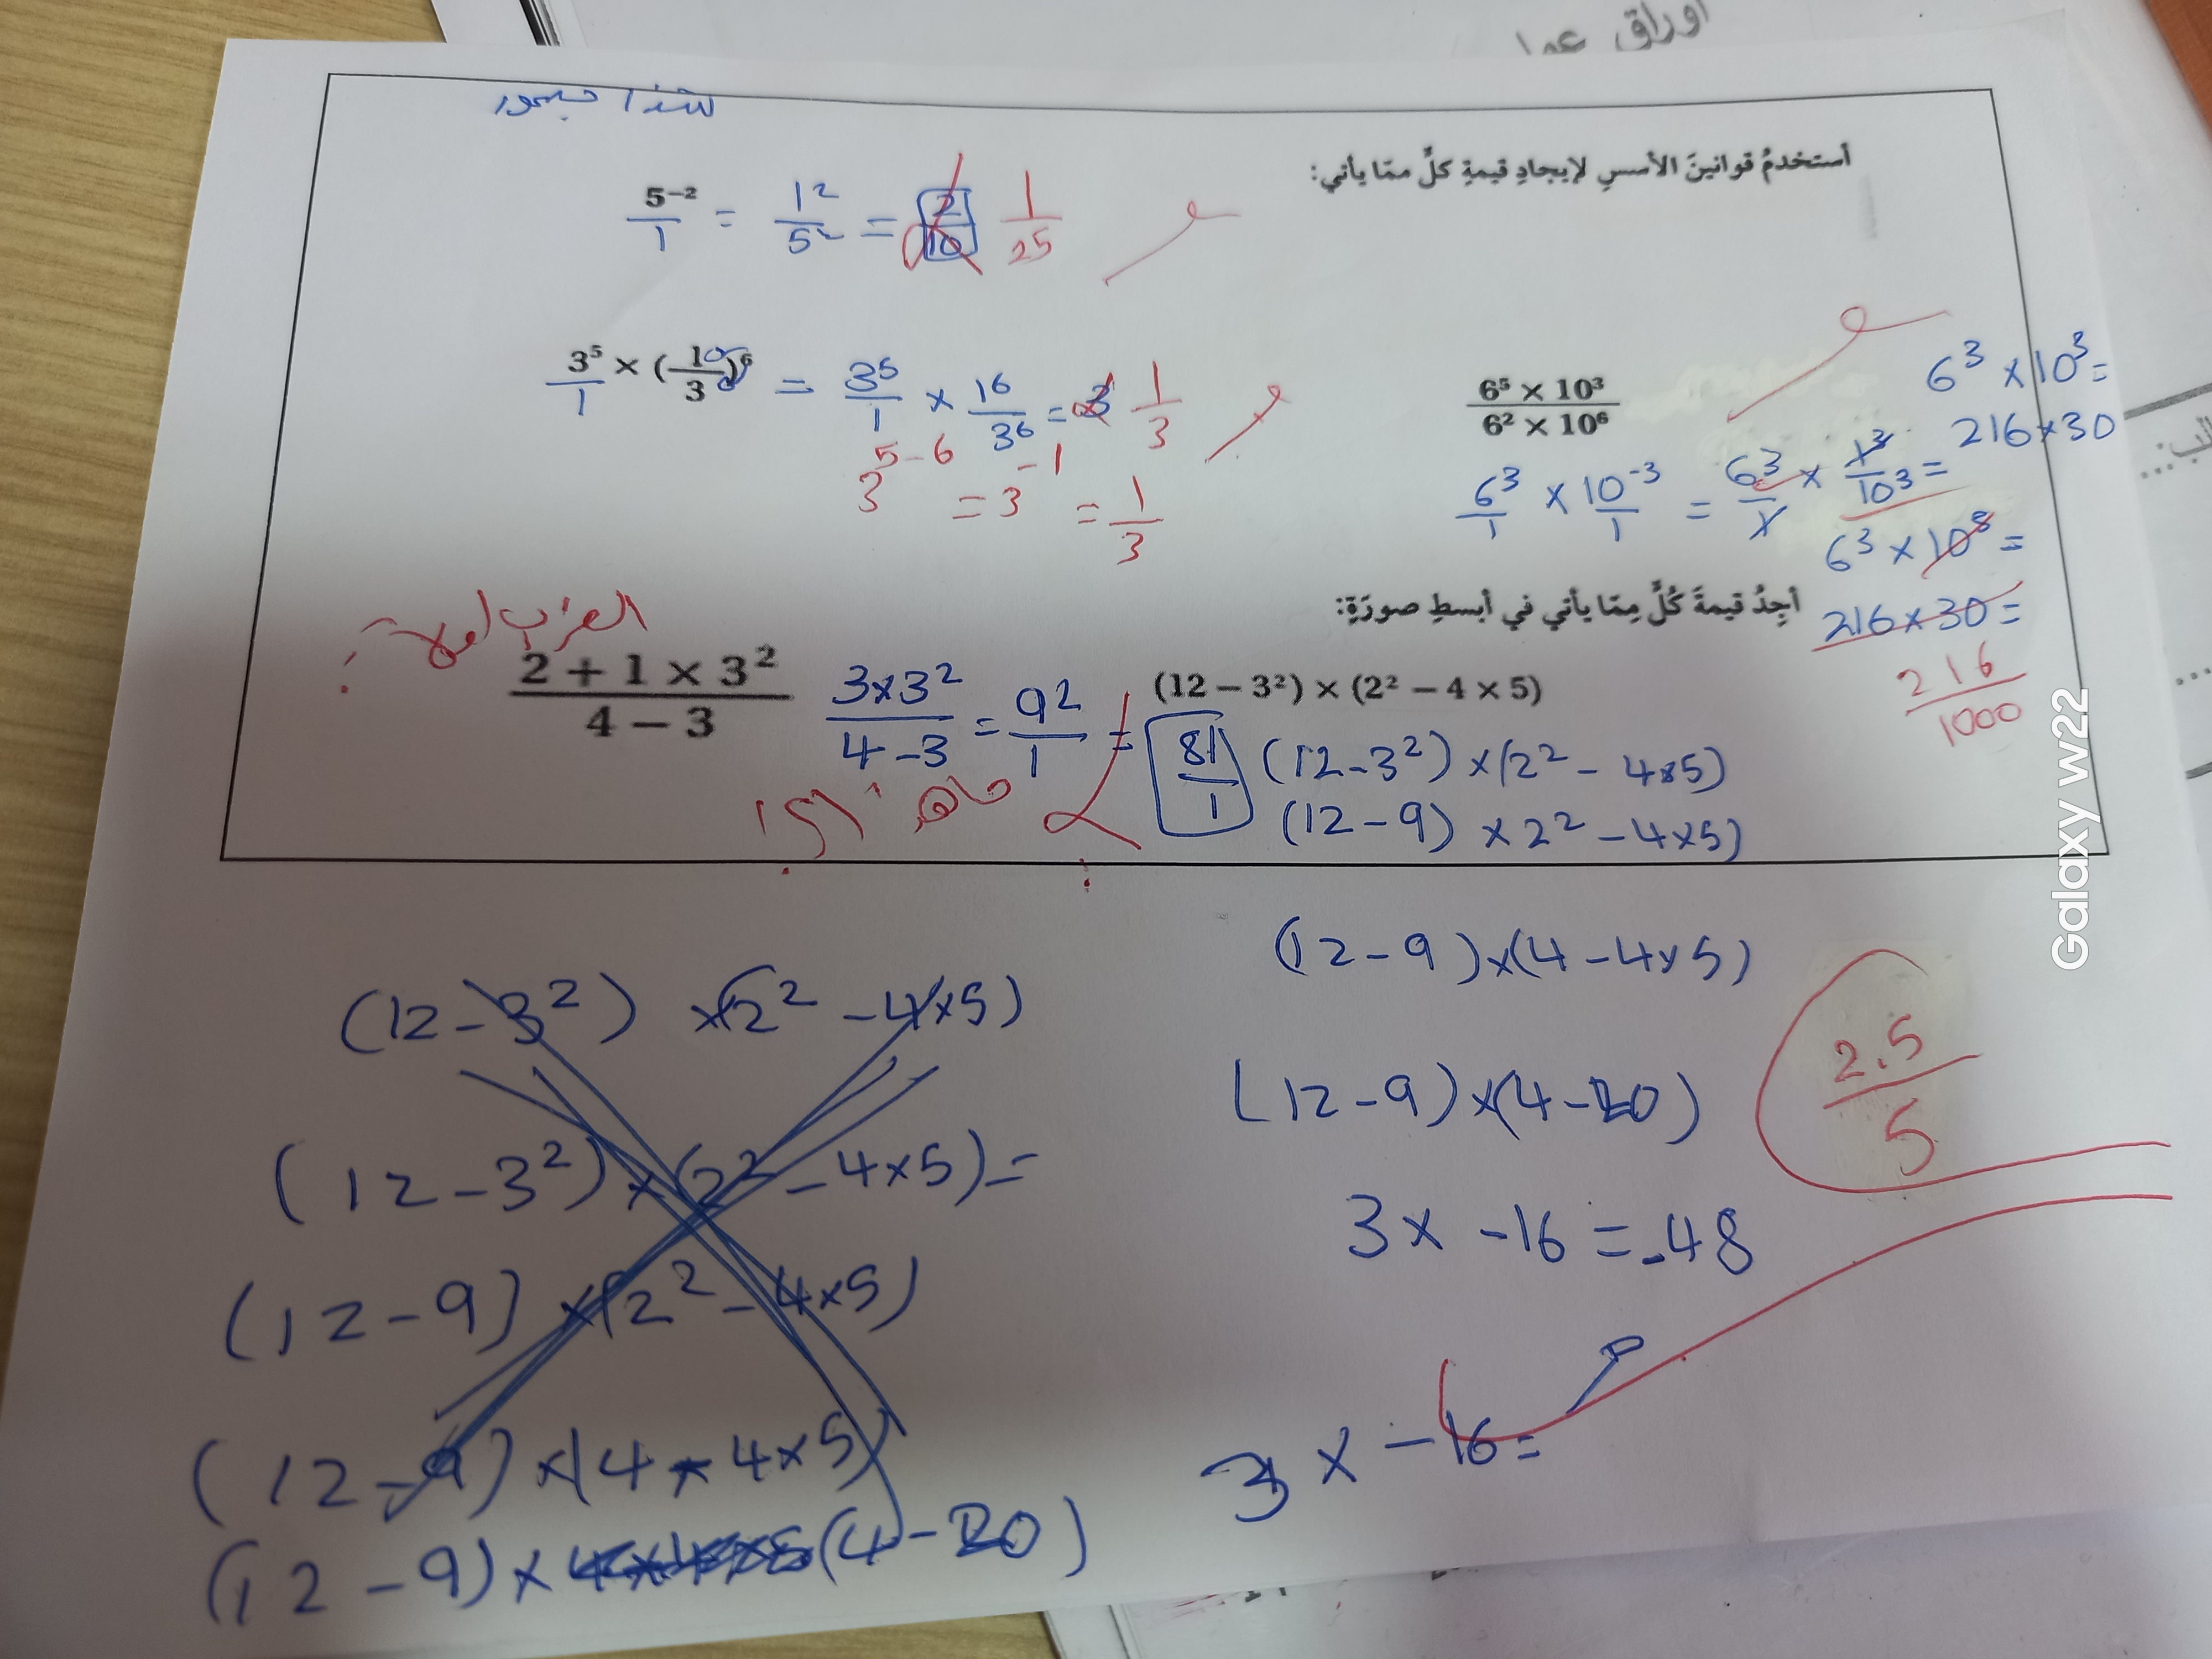 أوراق عمل
شذا
أستخدمُ قوانينَ الأسسِ لإيجادِ قيمةِ كلٍّ ممّا يأتي:
5⁻²/1 = 1²/5² = 2/10 1/25
3⁵/1 × (10/3)⁶ = 3⁵/1 × 1⁶/3⁶ = 3 1/3
3⁵⁻⁶ = 3⁻¹ = 1/3
6⁵ × 10³ / 6² × 10⁶
6³ × 10³ =
216 × 30
6³/1 × 10⁻³/1 = 6³/1 × 1³/10³ =
6³ × 10³ =
216 × 30 =
216/1000
أجِدُ قيمةَ كُلٍّ مِمّا يأتي في أبسطِ صورَةٍ:
الضرب أولاً
2 + 1 × 3² / 4 − 3
3×3² / 4−3 = 9²/1 = 81/1
(12 − 3²) × (2² − 4 × 5)
(12 − 3²) × (2² − 4×5)
(12 − 9) × 2² − 4×5)
(12 − 9) × (4 − 4×5)
(12 − 9) × (4 − 20)
3 × −16 = −48
3 × −16 =
2.5/5
(12 − 3²) × (2² − 4×5)
(12 − 3²) × (2² − 4×5) =
(12 − 9) × (2² − 4×5)
(12 − 9) × (4 − 4×5)
(12 − 9) × (4 − 20)
Galaxy W22